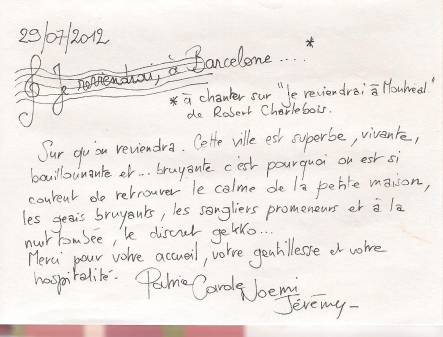 29/07/2012
Je reviendrai, à Barcelone .... *
* à chanter sur "Je reviendrai à Montréal"
de Robert Charlebois.
Sur qu'on reviendra. Cette ville est superbe, vivante,
bouillonnante et ... bruyante c'est pourquoi on est si
content de retrouver le calme de la petite maison,
les geais bruyants, les sangliers promeneurs et à la
nuit tombée, le discret gekko...
Merci pour votre accueil, votre gentillesse et votre
hospitalité.
Patrice Carole Noemi
Jérémy